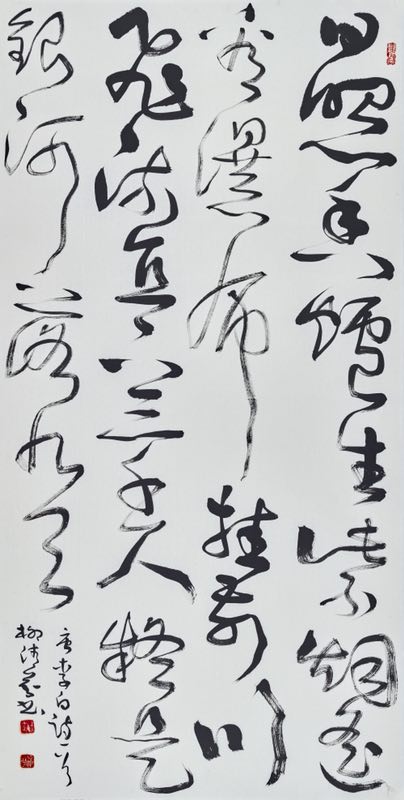 日照香爐生紫烟遥
看瀑布挂前川
飛流直下三千尺疑是
銀河落九天
唐李白詩一首
柳書